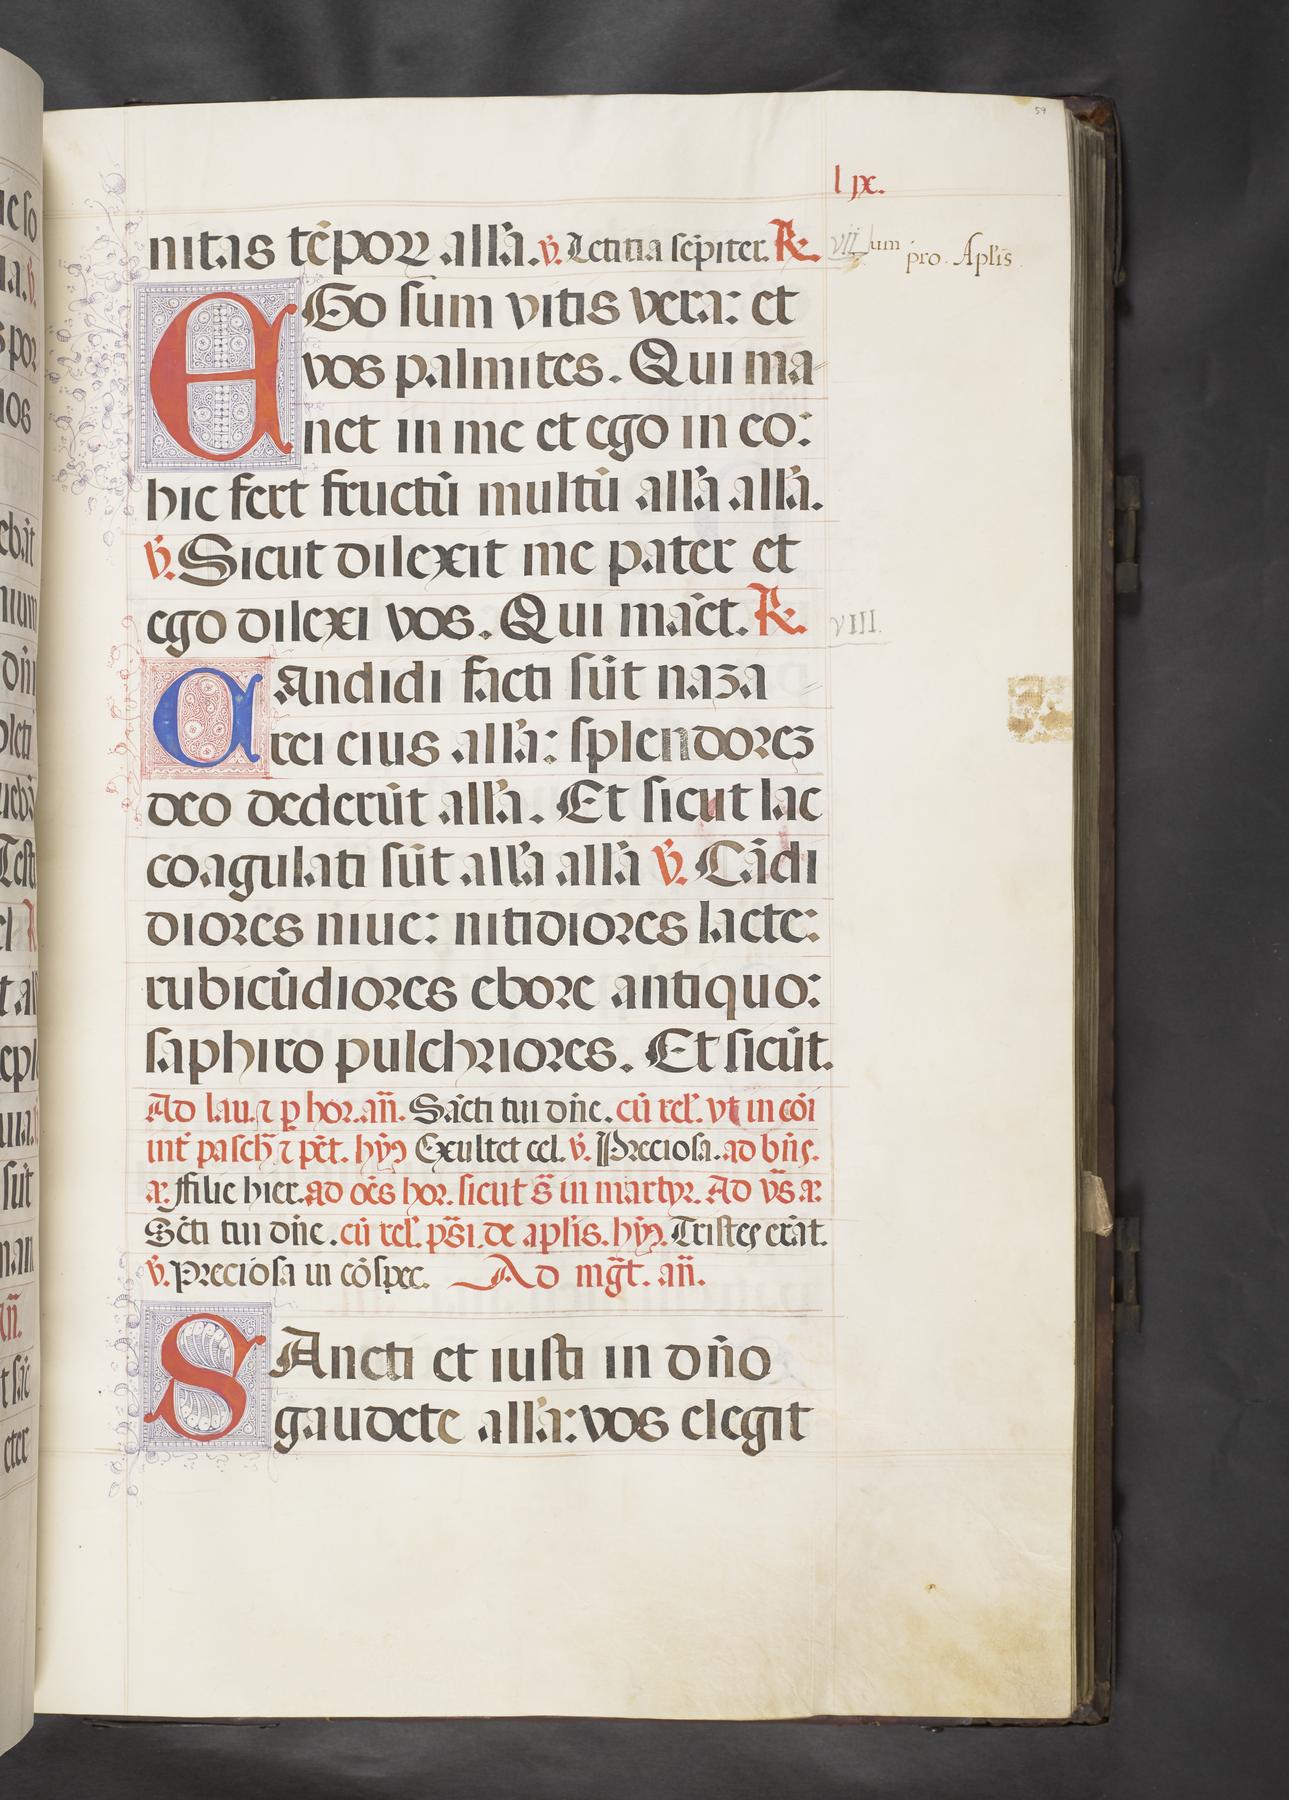 59
lix.
nitas tēpoꝝ all'a. ℣. Letitia sēpiter. ℟.
vii um pro. Aplīs
EGo sum vitis vera: et
vos palmites. Qui ma
net in me et ego in eo:
hic fert fructū multū all'a all'a.
℣. Sicut dilexit me pater et
ego dilexi vos. Qui māet. ℟.
VIII.
CAndidi facti sūt naza
rei eius all'a: splendores
deo dederūt all'a. Et sicut lac
coagulati sūt all'a all'a ℣. Cādi
diores niue: nitidiores lacte:
rubicūdiores ebore antiquo:
saphiro pulchriores. Et sicūt.
Ad lau. ⁊ ꝑ hor. añ. Sācti tui dñe. cū rel'. vt in cōi
int̄ pasch̄ ⁊ pēt. hyꝫ Exultet cel. ℣. Preciosa. ad bñs.
a. Filie hier. ad oēs hor. sicut s̄ in martyr. Ad v̄s a.
Scti tui dñe. cū rel'. ps̄i. de aplis. hyꝫ. Tristes erāt.
℣. Preciosa in cōspec. Ad mḡt. añ.
SAncti et iusti in dño
gaudete all'a: vos elegit